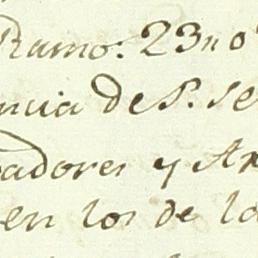 Ramo: 23no
ncia de P. Se
adores y Ar
en los de lo